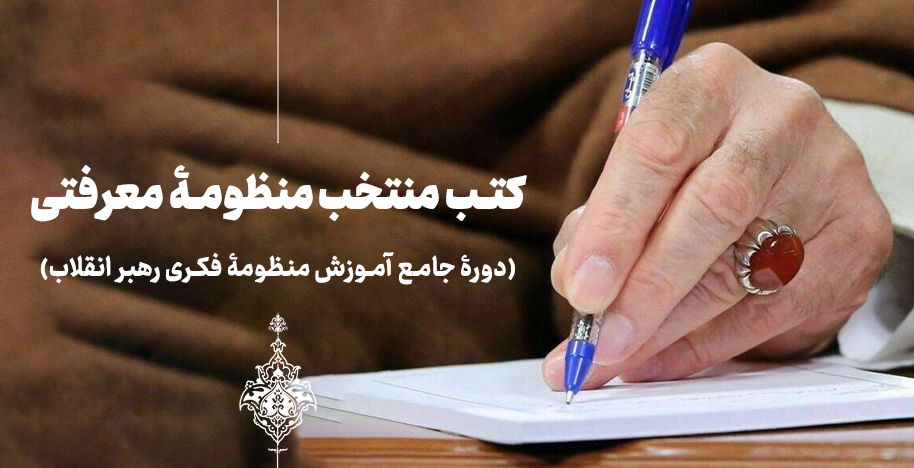 کتب منتخب منظومهٔ معرفتی
(دورهٔ جامع آموزش منظومهٔ فکری رهبر انقلاب)